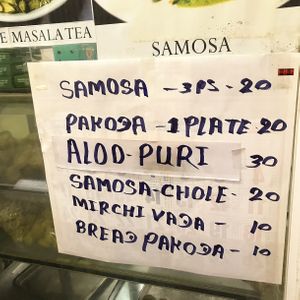 E MASALA TEA
SAMOSA
SAMOSA - 3PS - 20
PAKODA - 1 PLATE 20
ALOO-PURI 30
SAMOSA-CHOLE - 20
MIRCHI VADA - 10
BREAD PAKODA - 10